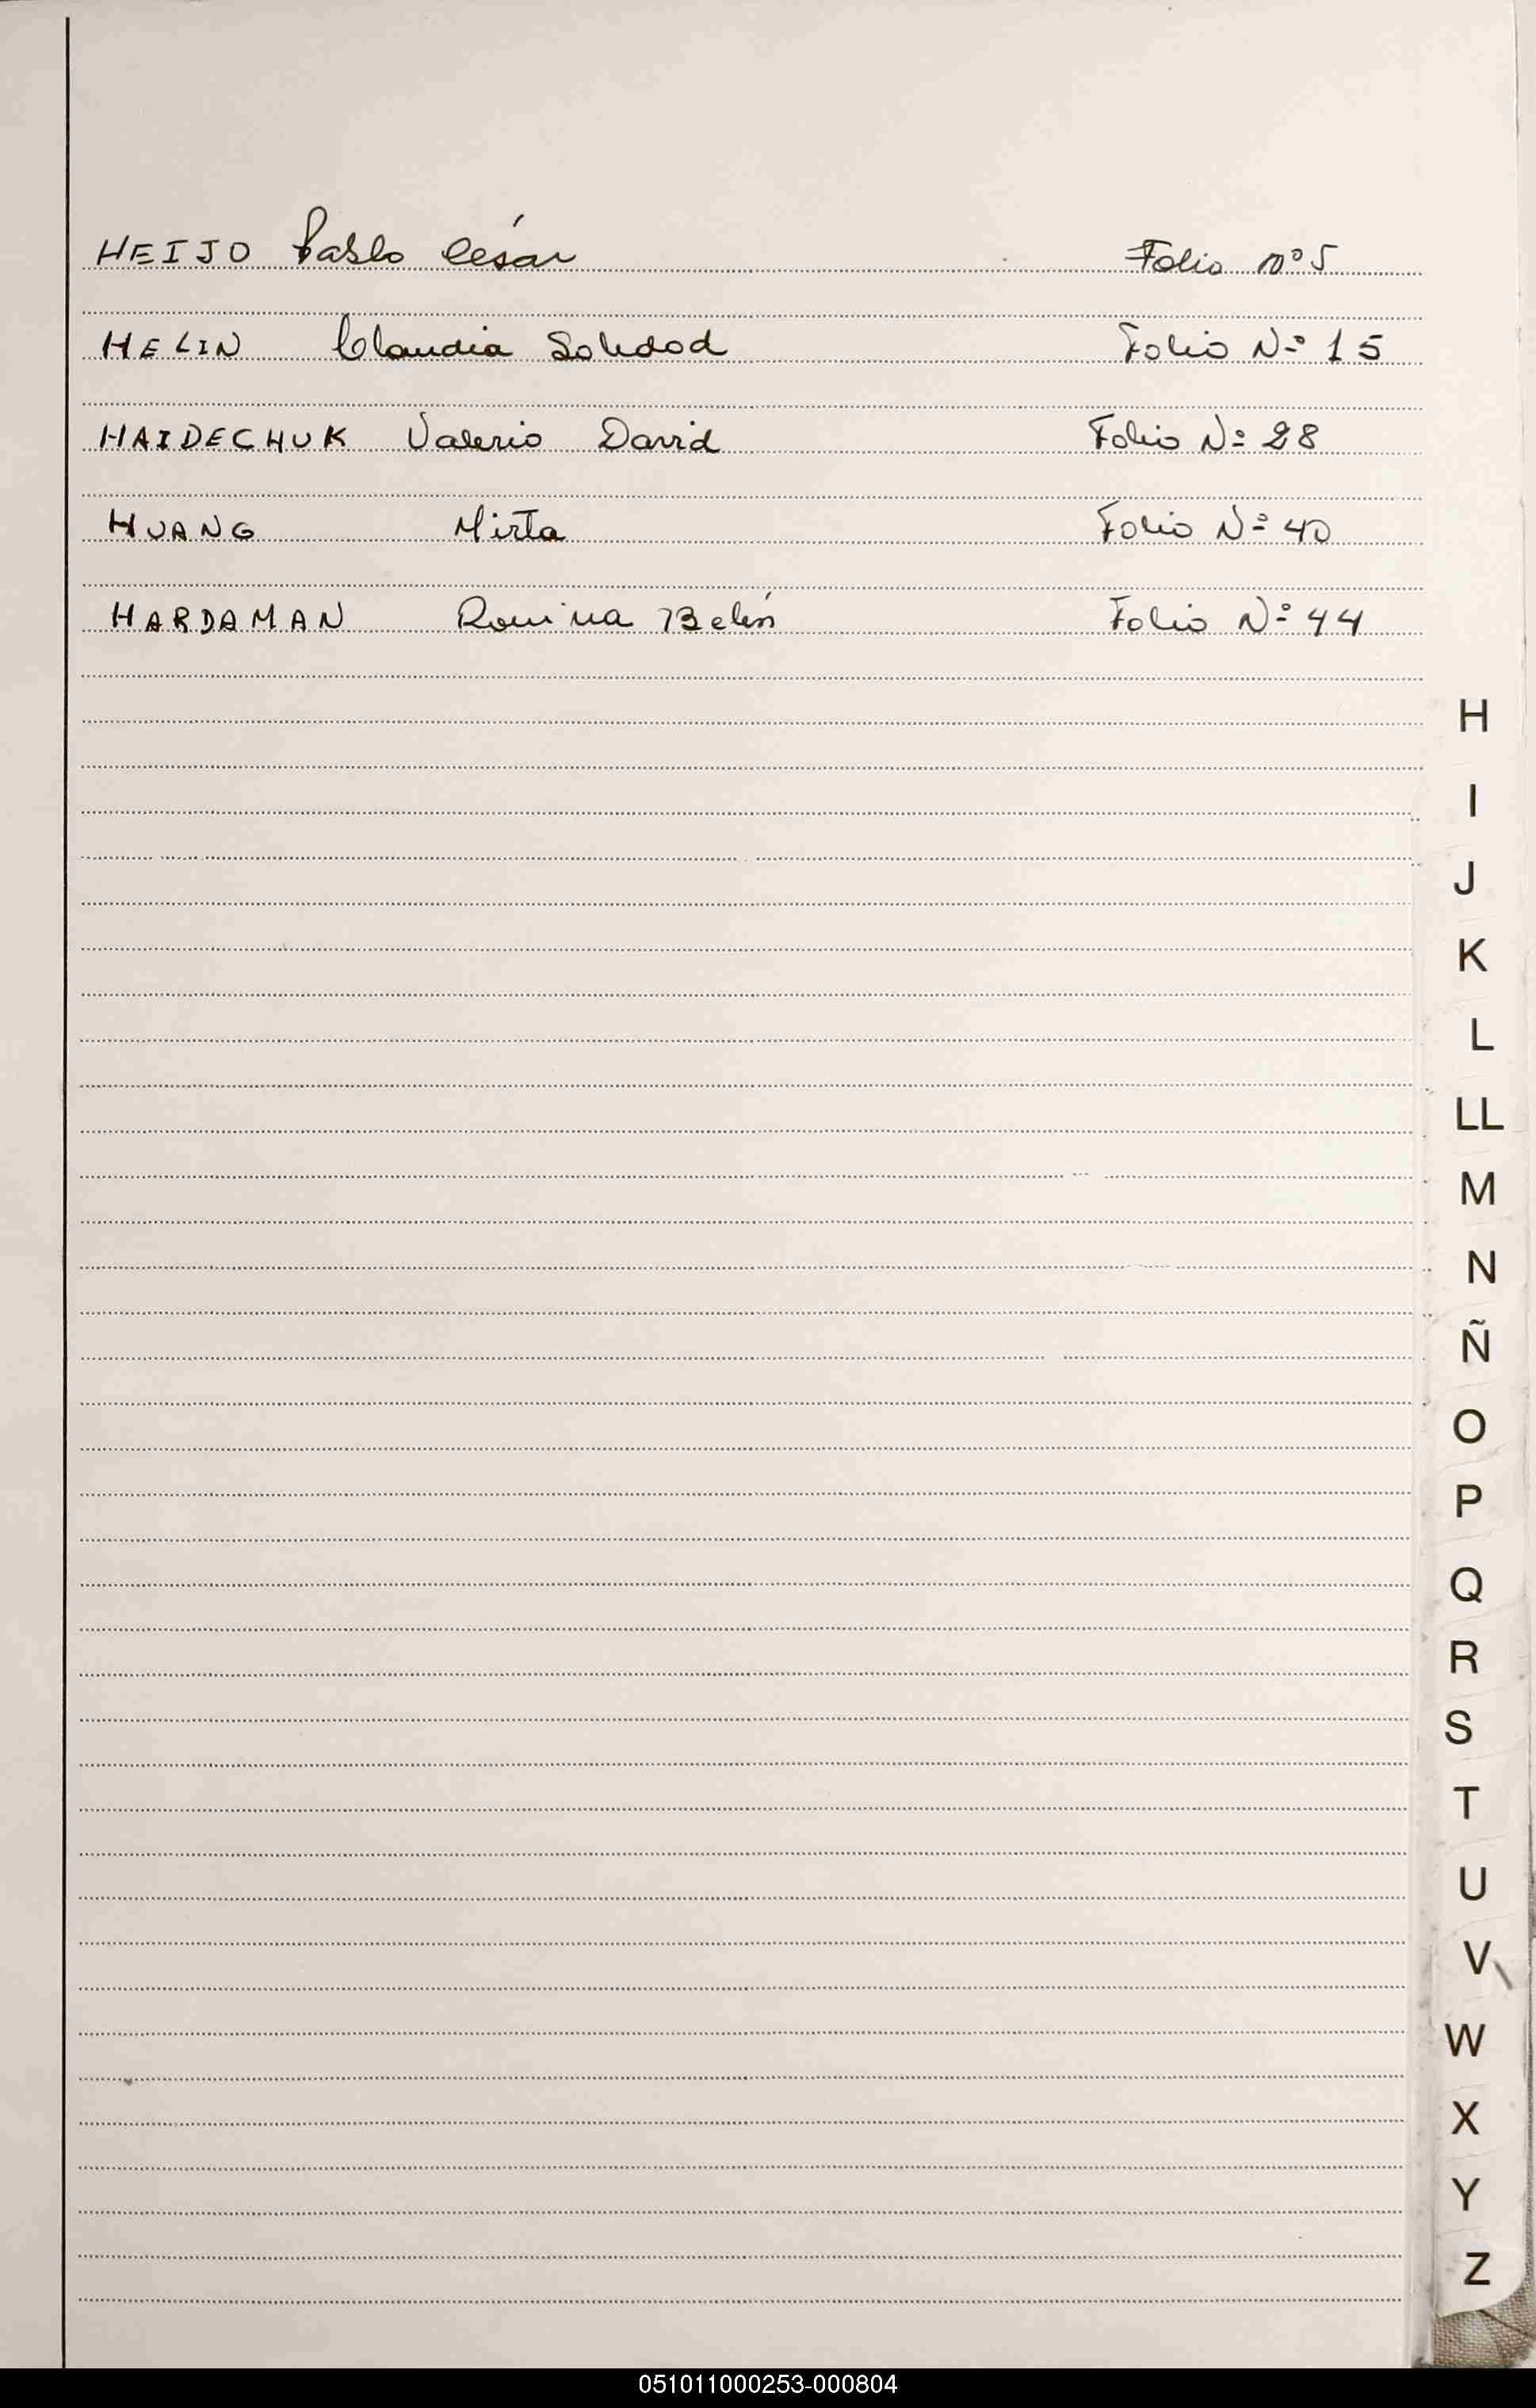 HEIJO Pablo César Folio nº 5
HELIN Claudia Soledad Folio Nº 15
HAIDECHUK Valerio David Folio Nº 28
HUANG Mirta Folio Nº 40
HARDAMAN Romina Belén Folio Nº 44
H
I
J
K
L
LL
M
N
Ñ
O
P
Q
R
S
T
U
V
W
X
Y
Z
051011000253-000804